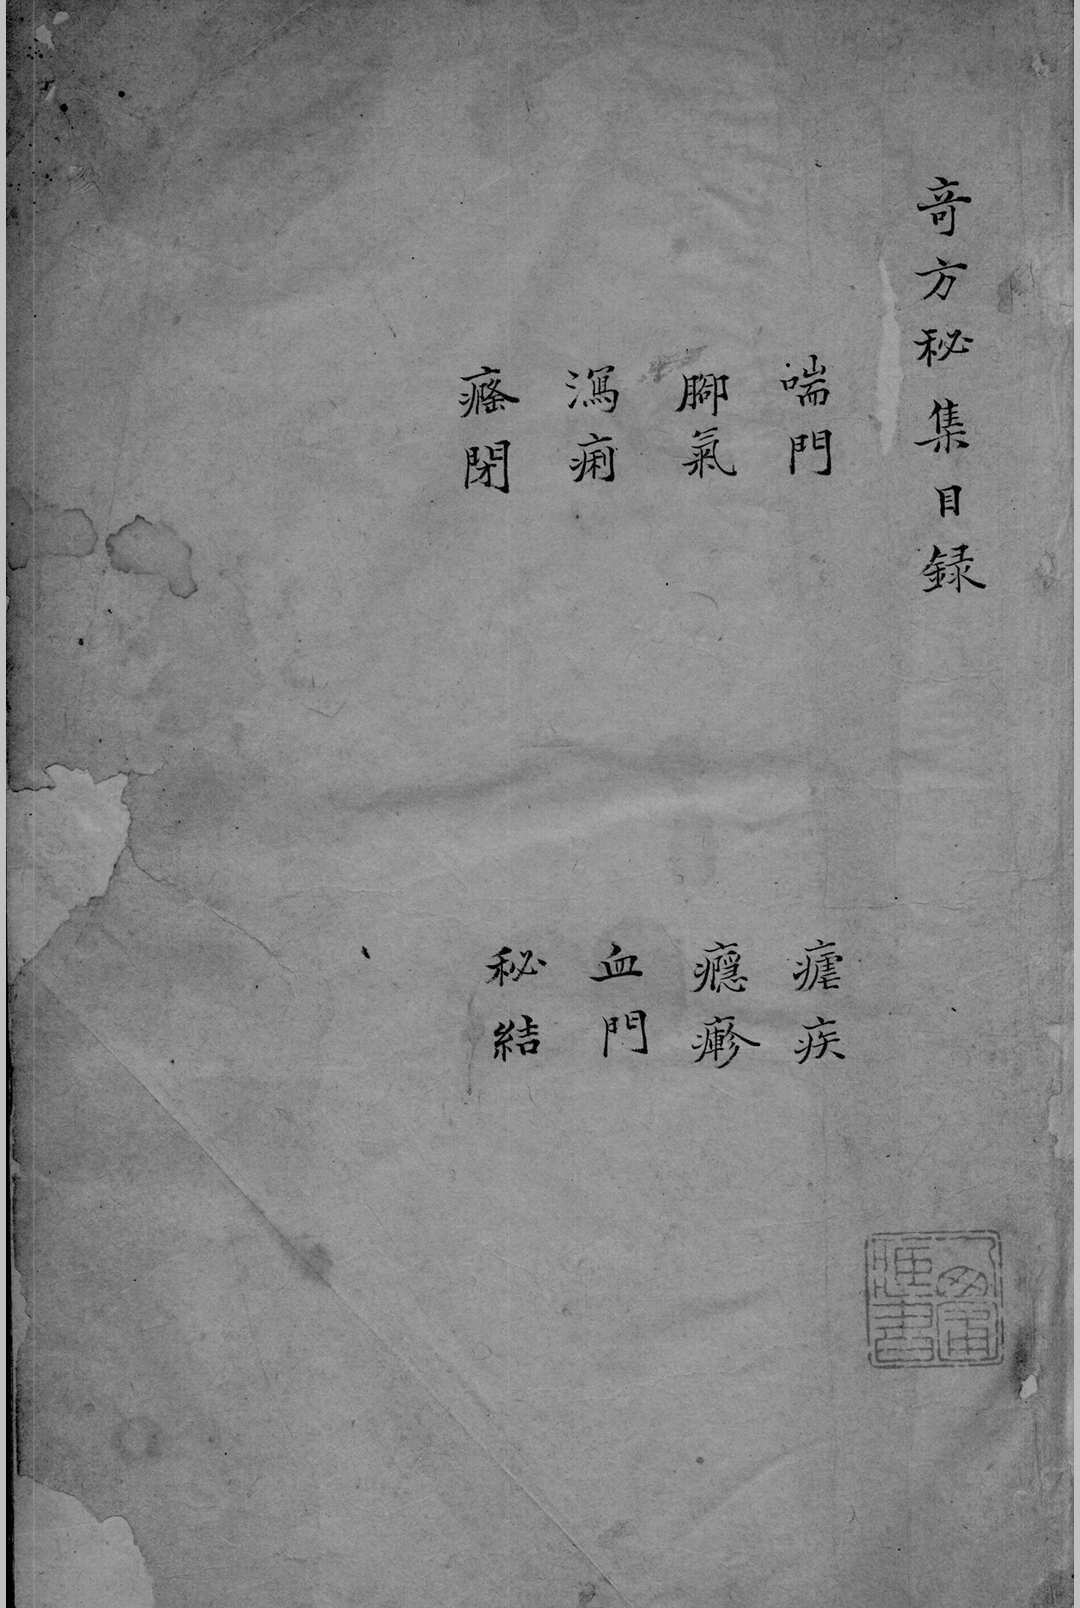 竒方秘集目録
喘門
瘧疾
腳氣
癮疹
瀉痢
血門
閉
秘結